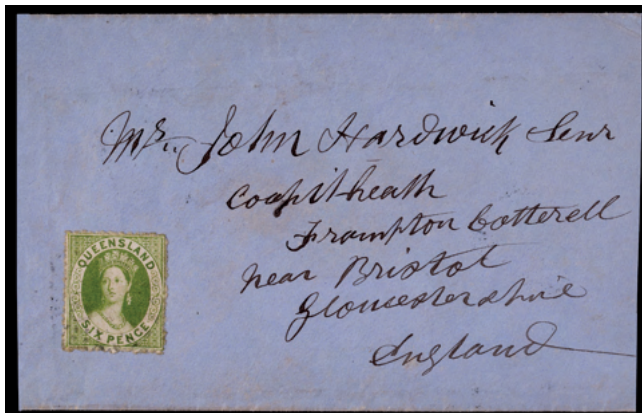 Mr. John Hardwick Senr
Coalpit heath
Frampton Cotterell
near Bristol
Gloucestershire
England
QUEENSLAND
SIX PENCE